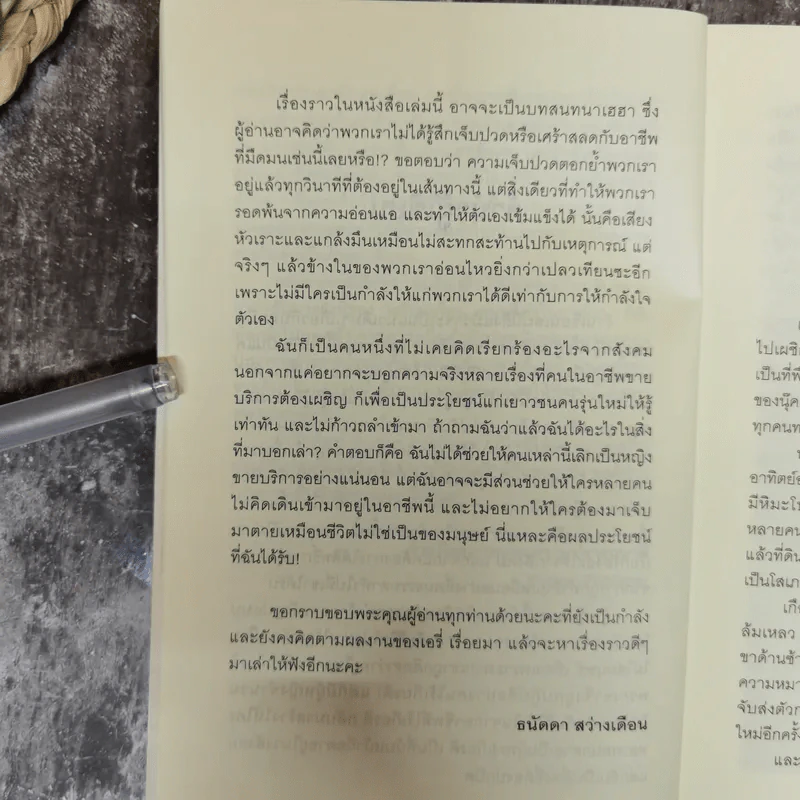 เรื่องราวในหนังสือเล่มนี้ อาจจะเป็นบทสนทนาเฮฮา ซึ่ง
ผู้อ่านอาจคิดว่าพวกเราไม่ได้รู้สึกเจ็บปวดหรือเศร้าสลดกับอาชีพ
ที่มืดมนเช่นนี้เลยหรือ!? ขอตอบว่า ความเจ็บปวดตอกย้ำพวกเรา
อยู่แล้วทุกวินาทีที่ต้องอยู่ในเส้นทางนี้ แต่สิ่งเดียวที่ทำให้พวกเรา
รอดพ้นจากความอ่อนแอ และทำให้ตัวเองเข้มแข็งได้ นั้นคือเสียง
หัวเราะและแกล้งมึนเหมือนไม่สะทกสะท้านไปกับเหตุการณ์ แต่
จริงๆ แล้วข้างในของพวกเราอ่อนไหวยิ่งกว่าเปลวเทียนซะอีก
เพราะไม่มีใครเป็นกำลังให้แก่พวกเราได้ดีเท่ากับการให้กำลังใจ
ตัวเอง
ฉันก็เป็นคนหนึ่งที่ไม่เคยคิดเรียกร้องอะไรจากสังคม
นอกจากแค่อยากจะบอกความจริงหลายเรื่องที่คนในอาชีพขาย
บริการต้องเผชิญ ก็เพื่อเป็นประโยชน์แก่เยาวชนคนรุ่นใหม่ให้รู้
เท่าทัน และไม่ก้าวถลำเข้ามา ถ้าถามฉันว่าแล้วฉันได้อะไรในสิ่ง
ที่มาบอกเล่า? คำตอบก็คือ ฉันไม่ได้ช่วยให้คนเหล่านี้เลิกเป็นหญิง
ขายบริการอย่างแน่นอน แต่ฉันอาจจะมีส่วนช่วยให้ใครหลายคน
ไม่คิดเดินเข้ามาอยู่ในอาชีพนี้ และไม่อยากให้ใครต้องมาเจ็บ
มาตายเหมือนชีวิตไม่ใช่เป็นของมนุษย์ นี่แหละคือผลประโยชน์
ที่ฉันได้รับ!
ขอกราบขอบพระคุณผู้อ่านทุกท่านด้วยนะคะที่ยังเป็นกำลัง
และยังคงคิดตามผลงานของเอรี่ เรื่อยมา แล้วจะหาเรื่องราวดีๆ
มาเล่าให้ฟังอีกนะคะ
ธนัดดา สว่างเดือน
ไปเผชิ
เป็นที่พึ
ของนุ๊ค
ทุกคนท
อาทิตย์
มีหิมะโ
หลายคน
แล้วที่ดิน
เป็นโสเภ
เกื
ล้มเหลว
ขาด้านซ้
ความหมา
จับส่งตัวก
ใหม่อีกครั้
และ